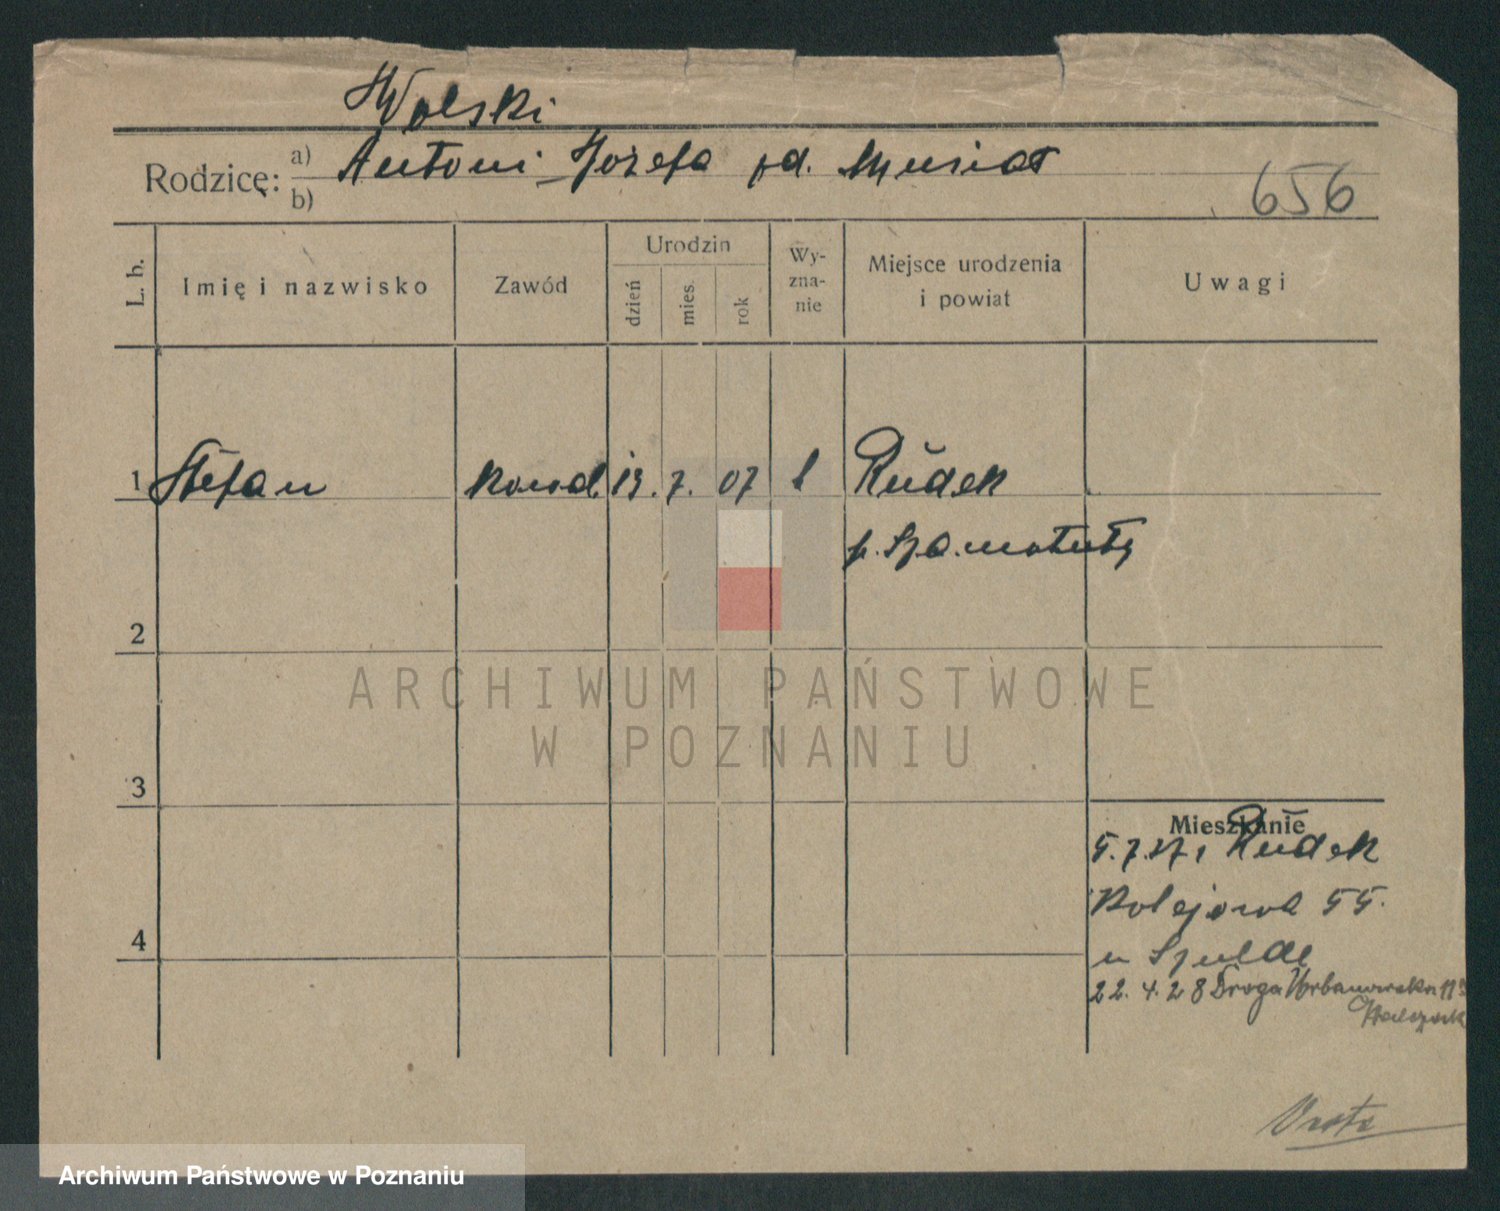 Wolski
Rodzice: a) Antoni Józefa zd. Musiał
b)
656
L. b.
Imię i nazwisko
Zawód
Urodzin
dzień
mies.
rok
Wy-
zna-
nie
Miejsce urodzenia
i powiat
Uwagi
1 Stefan 13. 7. 07 Rudek
p. Szamotuły
2
ARCHIWUM PAŃSTWOWE
W POZNANIU
3
Mieszkanie
5.7.27, Rudek
Kolejowa 55.
u
4
22.4.28 Droga Urbanowska
Archiwum Państwowe w Poznaniu